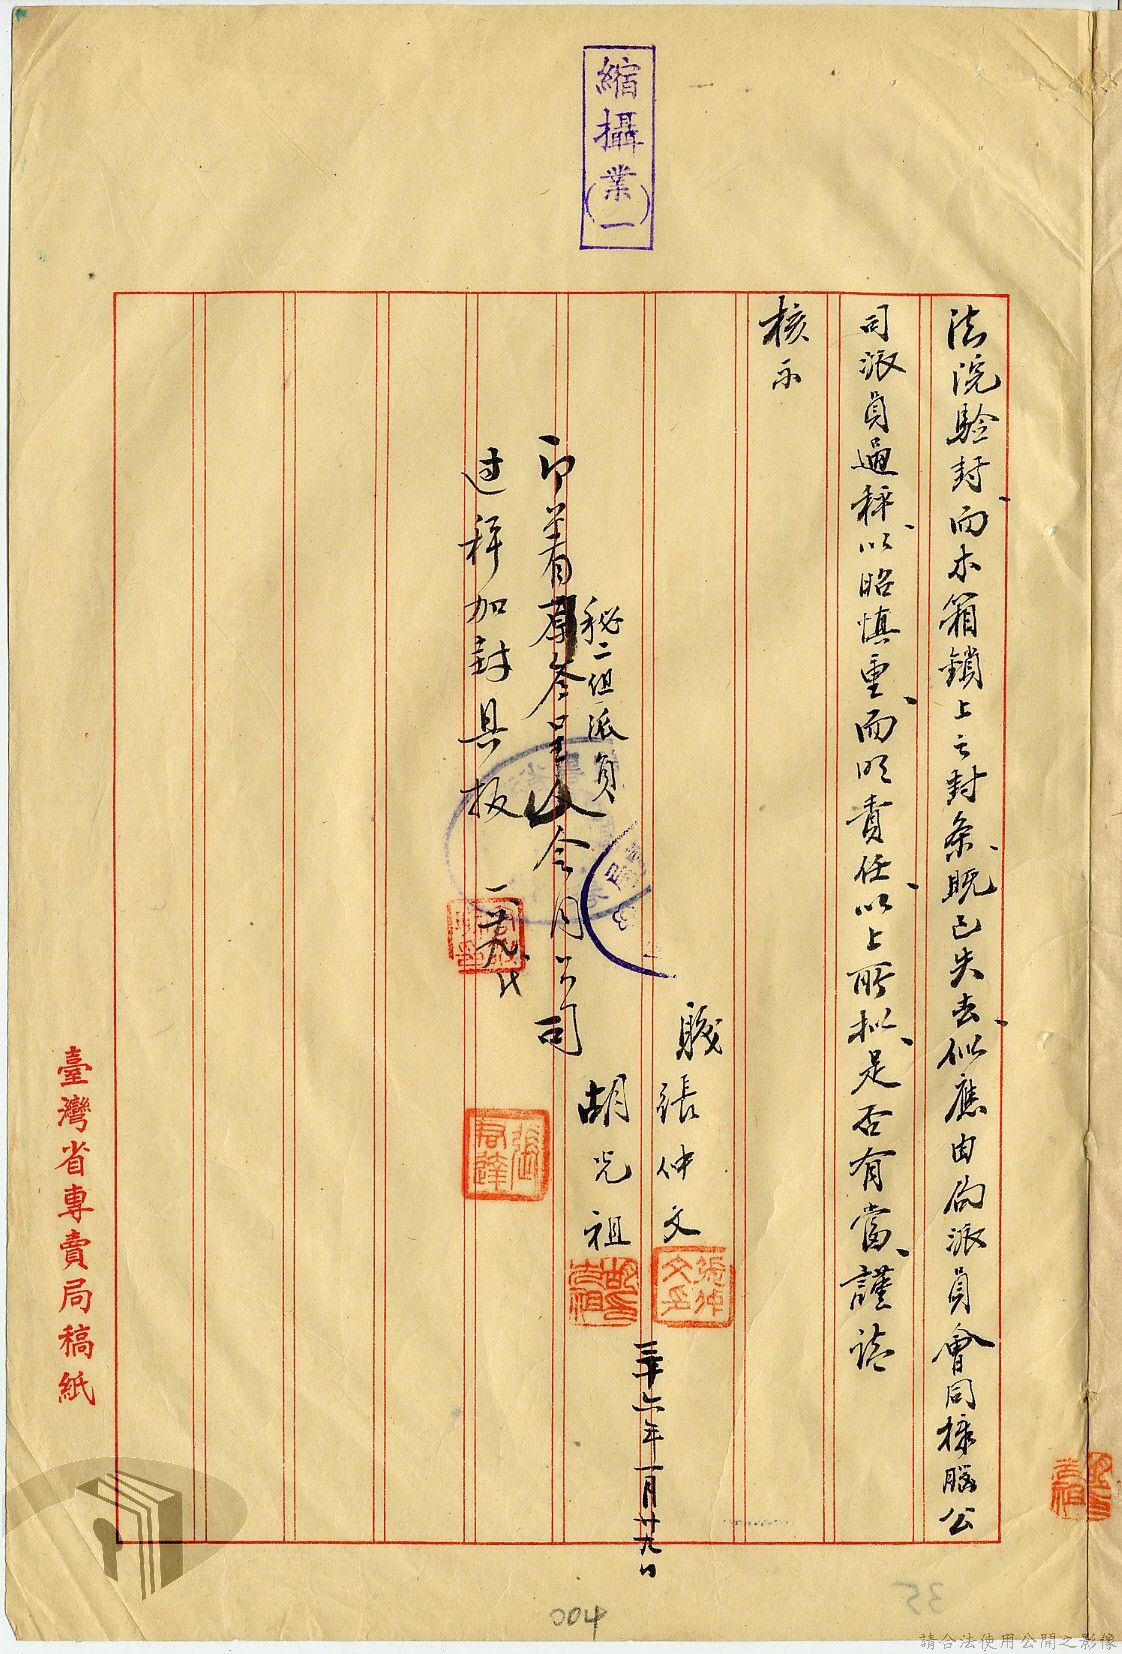 縮攝業(一)
法院驗封、而木箱鎖上之封条、既已失去、似應由局派員會同樟腦公
司派員過秤、以昭慎重、而明責任、以上所拟、是否有當、謹請
核示
職張仲文
胡光祖
三十六年一月廿九日
秘二組派員
即着
會同公司
过秤加封具报
臺灣省專賣局稿紙
004
35
請合法使用公開之影像